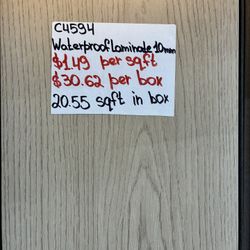 C4594
Waterproof Laminate 10mm
$1.49 per sqft
$30.62 per box
20.55 sqft in box